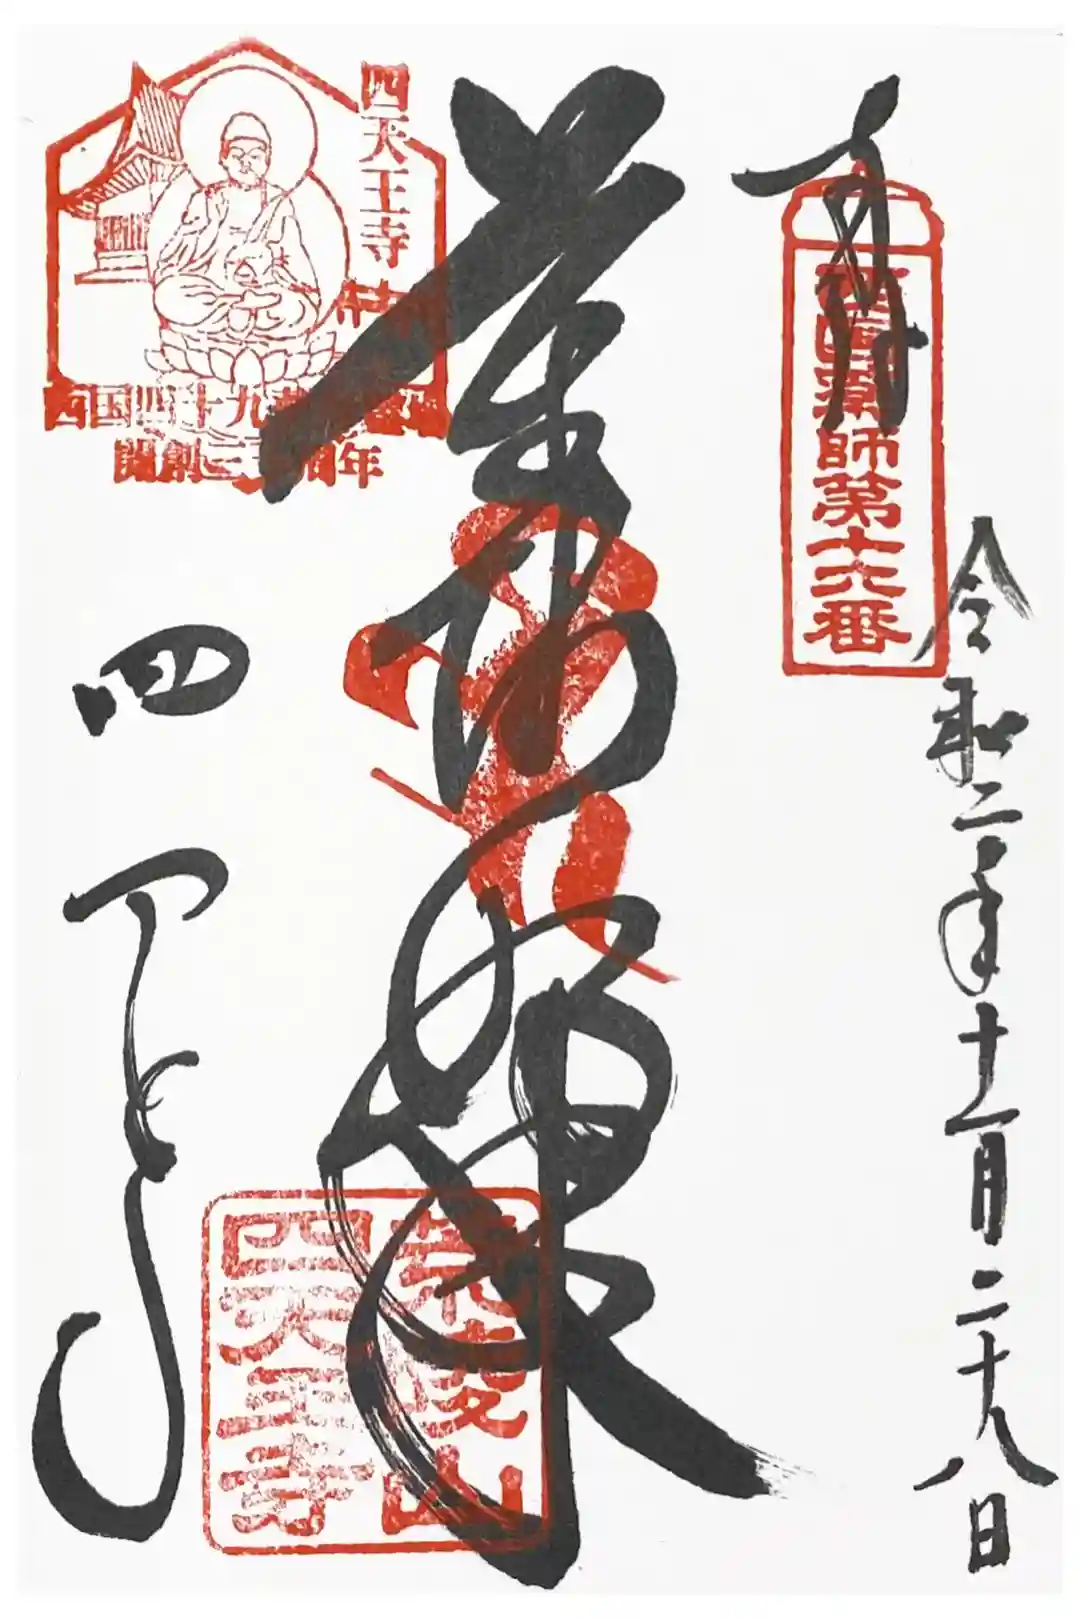 奉拝
西国薬師第十六番
令和二年十一月二十八日
薬師如来
荒陵山
四天王寺
四天王寺
四天王寺
西国四十九薬師霊場
開創三十周年